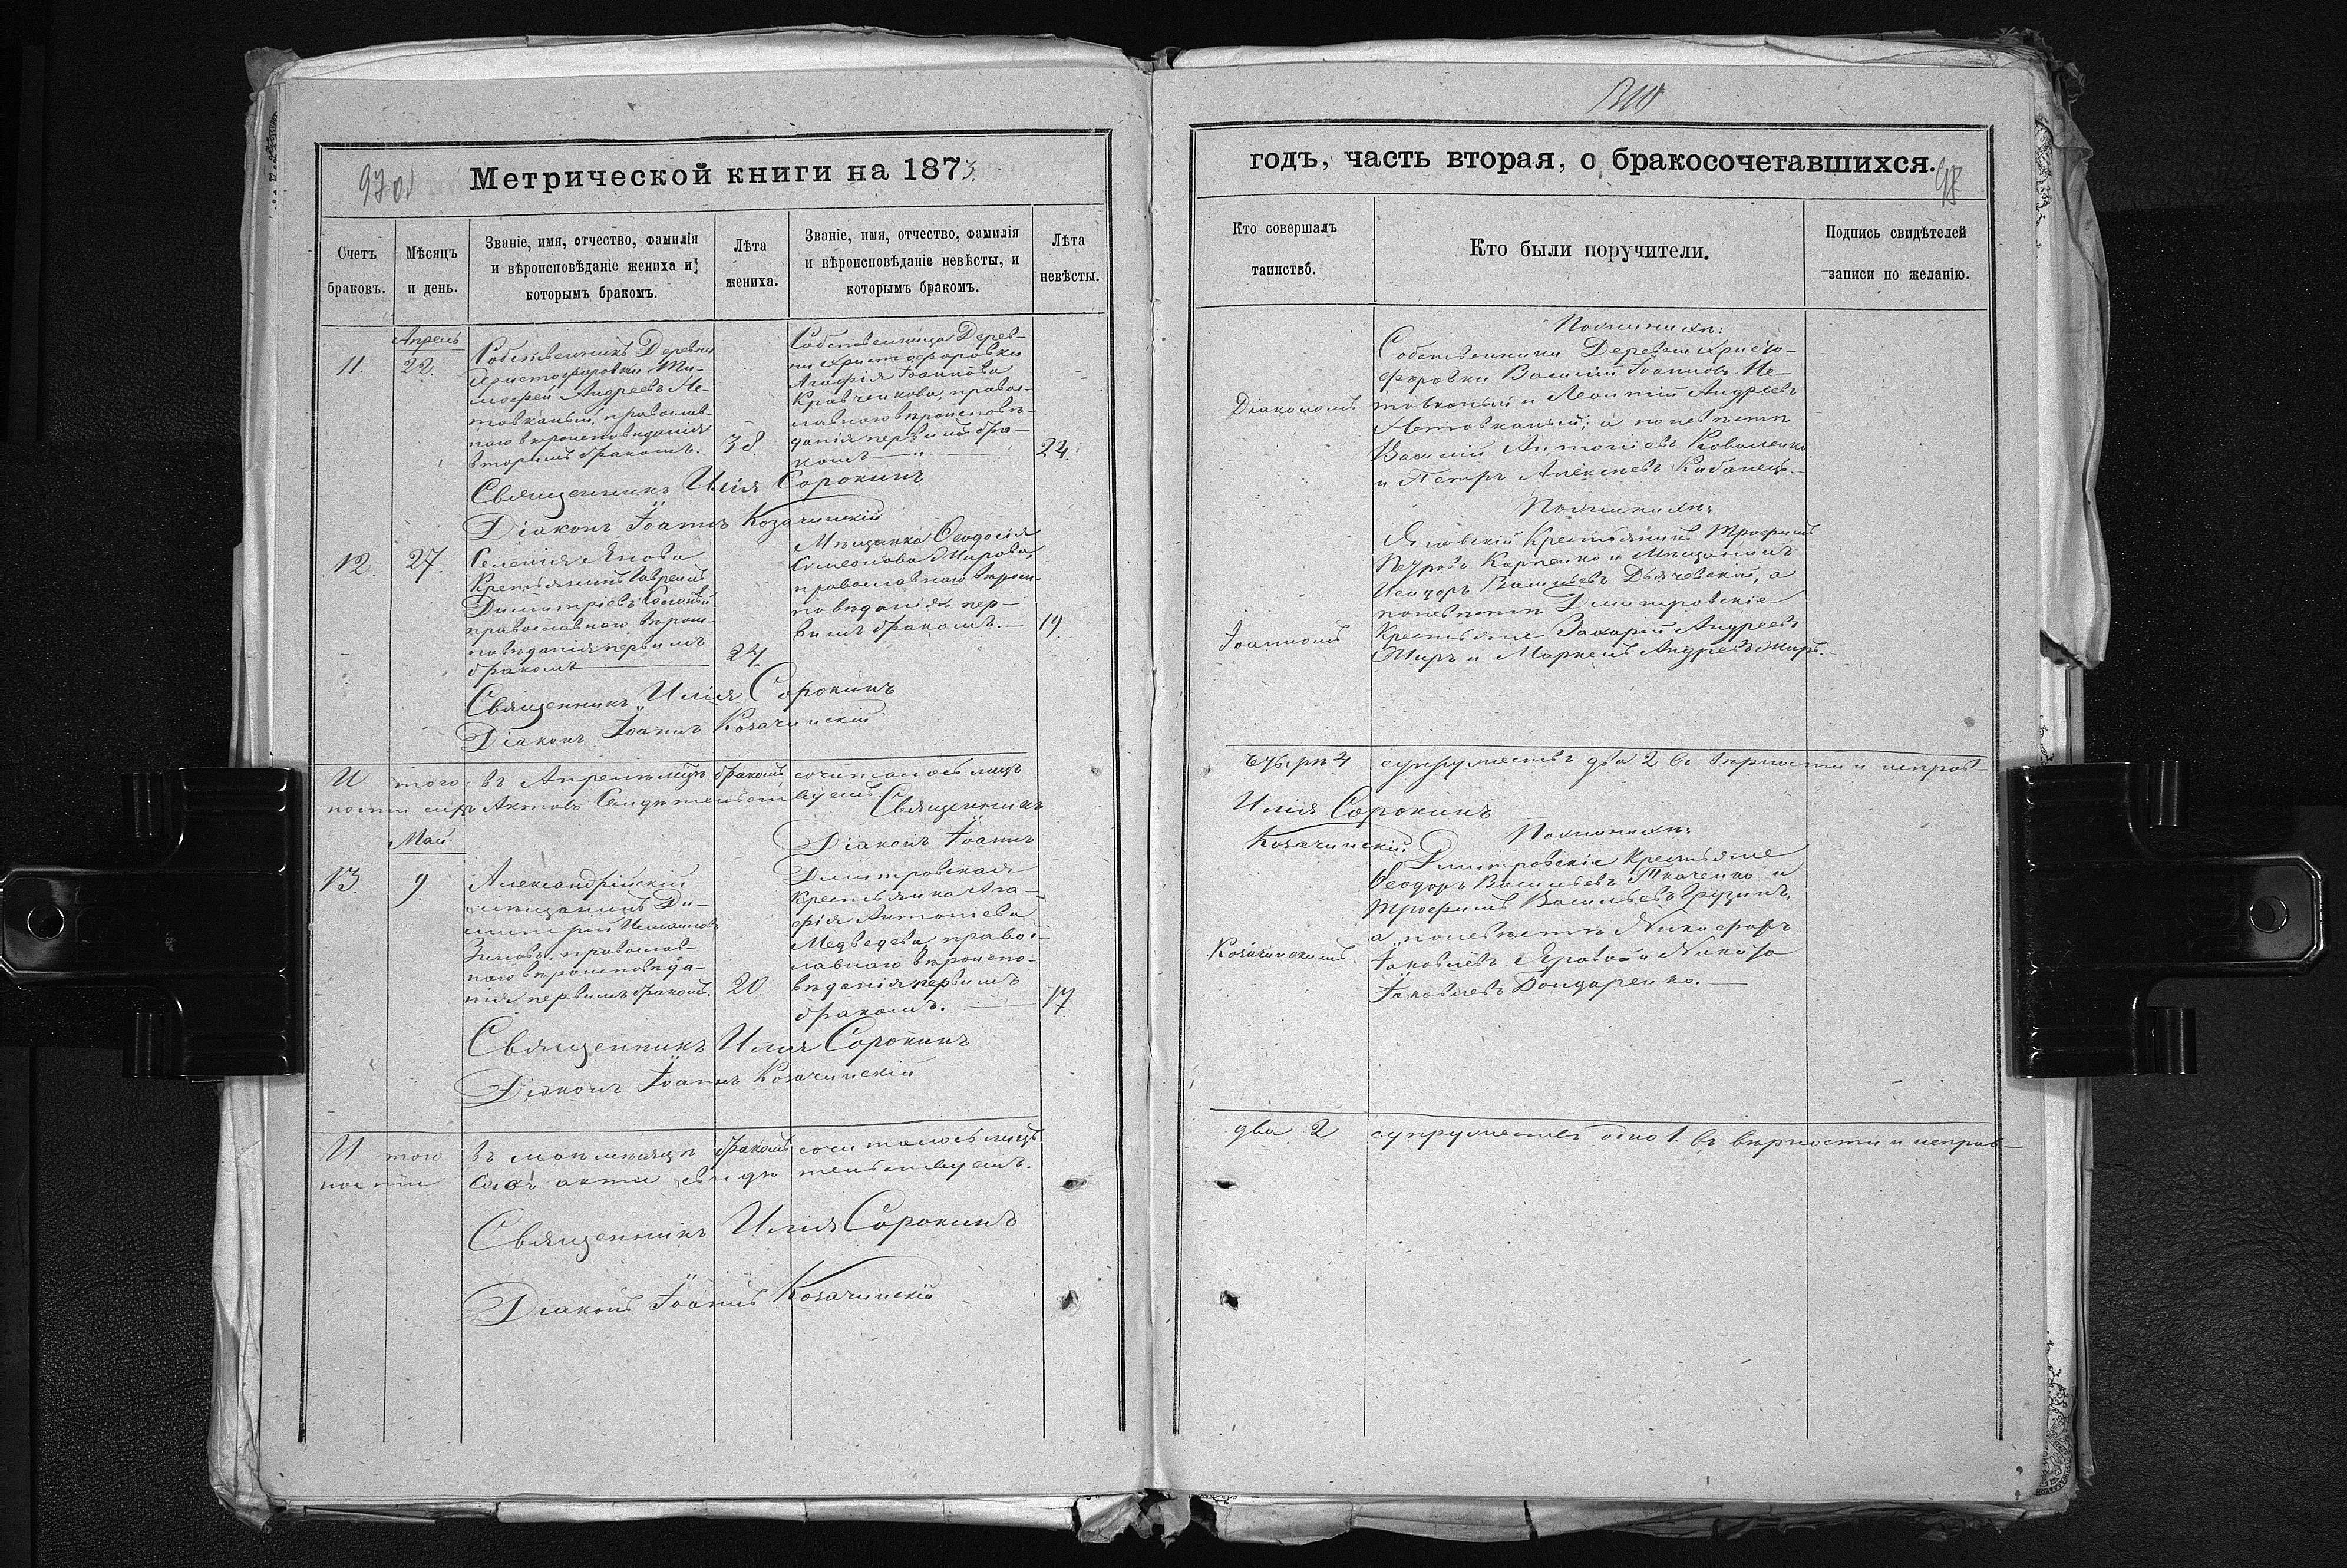 Метрической книги на 1873.
Счетъ
браковъ.
Мѣсяцъ
и день.
Званіе, имя, отчество, фамилія
и вѣроисповѣданіе жениха и
которымъ бракомъ.
Лѣта
жениха.
Званіе, имя, отчество, фамилія
и вѣроисповѣданіе невѣсты, и
которымъ бракомъ.
Лѣта
невѣсты.
Апрель
11.
22.
Собственникъ Деревни
Христофоровки Ти-
мофей Андреевъ Не-
товканый, православ-
наго вѣроисповѣданія
вторымъ бракомъ.
38.
Собственница Дерев-
ни Христофоровки
Агафія Іоаннова
Кравченкова, правос-
лавнаго вѣроисповѣ-
данія первымъ бра-
комъ
24.
Священникъ Илія Сорокинъ
Діаконъ Іоаннъ Козачинскій
12.
27.
Селенія
Крестьянинъ Гавріилъ
Димитріевъ
православнаго вѣроис-
повѣданія первымъ
бракомъ
24
Мѣщанка Ѳеодосія
Симеонова
православнаго вѣроис-
повѣданія, пер-
вымъ бракомъ.
19.
Священникъ Илія Сорокинъ
Діаконъ Іоаннъ Козачинскій
И того въ Апрелѣ мцѣ бракомъ сочиталось лицъ
ности сихъ Актовъ Свидѣтельствуемъ.
Священникъ
Діаконъ Іоаннъ
Май
13.
9.
Александрійскій
мѣщанинъ Ди-
митрій
православ-
наго вѣроисповѣда-
нія первымъ бракомъ.
20.
Дмитровская
Крестьянка Ага-
фія Антоніева
Медведева, правос-
лавнаго вѣроиспо-
вѣданія первымъ
бракомъ.
17.
Священникъ Илія Сорокинъ
Діаконъ Іоаннъ Козачинскій
И того въ маѣ мѣсяцѣ бракомъ сочиталось лицъ
ности сего акта свидѣтельствуемъ.
Священникъ Илія Сорокинъ
Діаконъ Іоаннъ Козачинскій
годъ, часть вторая, о бракосочетавшихся.
98
Кто совершалъ
таинство.
Кто были поручители.
Подпись свидѣтелей
записи по желанію.
Діакономъ
По женихѣ:
Собственники Деревни Христо-
форовки Василій Іоанновъ Не-
товканый и Леонтій Андреевъ
Нетовканый; а по невѣстѣ
Василій Антоніевъ Коваленко
и Петръ Алексѣевъ Кабанецъ.
Іоанномъ
По женихѣ:
Крестьянинъ Трофимъ
Петровъ Карпенко и Мѣщанинъ
Исидоръ Васильевъ Дьячевскій, а
по невѣстѣ Дмитровскіе
Крестьяне Захарій Андреевъ
Жиръ и Маркелъ Андреевъ Жиръ.
четыре 4 супружествъ два 2 въ вѣрности и исправ-
Илія Сорокинъ
Козачинскій
Козачинскимъ.
По женихѣ:
Дмитровскіе Крестьяне
Ѳеодоръ Васильевъ Ткаченко и
Трофимъ Васильевъ Грузинъ,
а по невѣстѣ Никифоръ
Іаковлевъ Яровой и Никита
Іаковлевъ Бондаренко.
два 2 супружествъ одно 1. въ вѣрности и исправ-